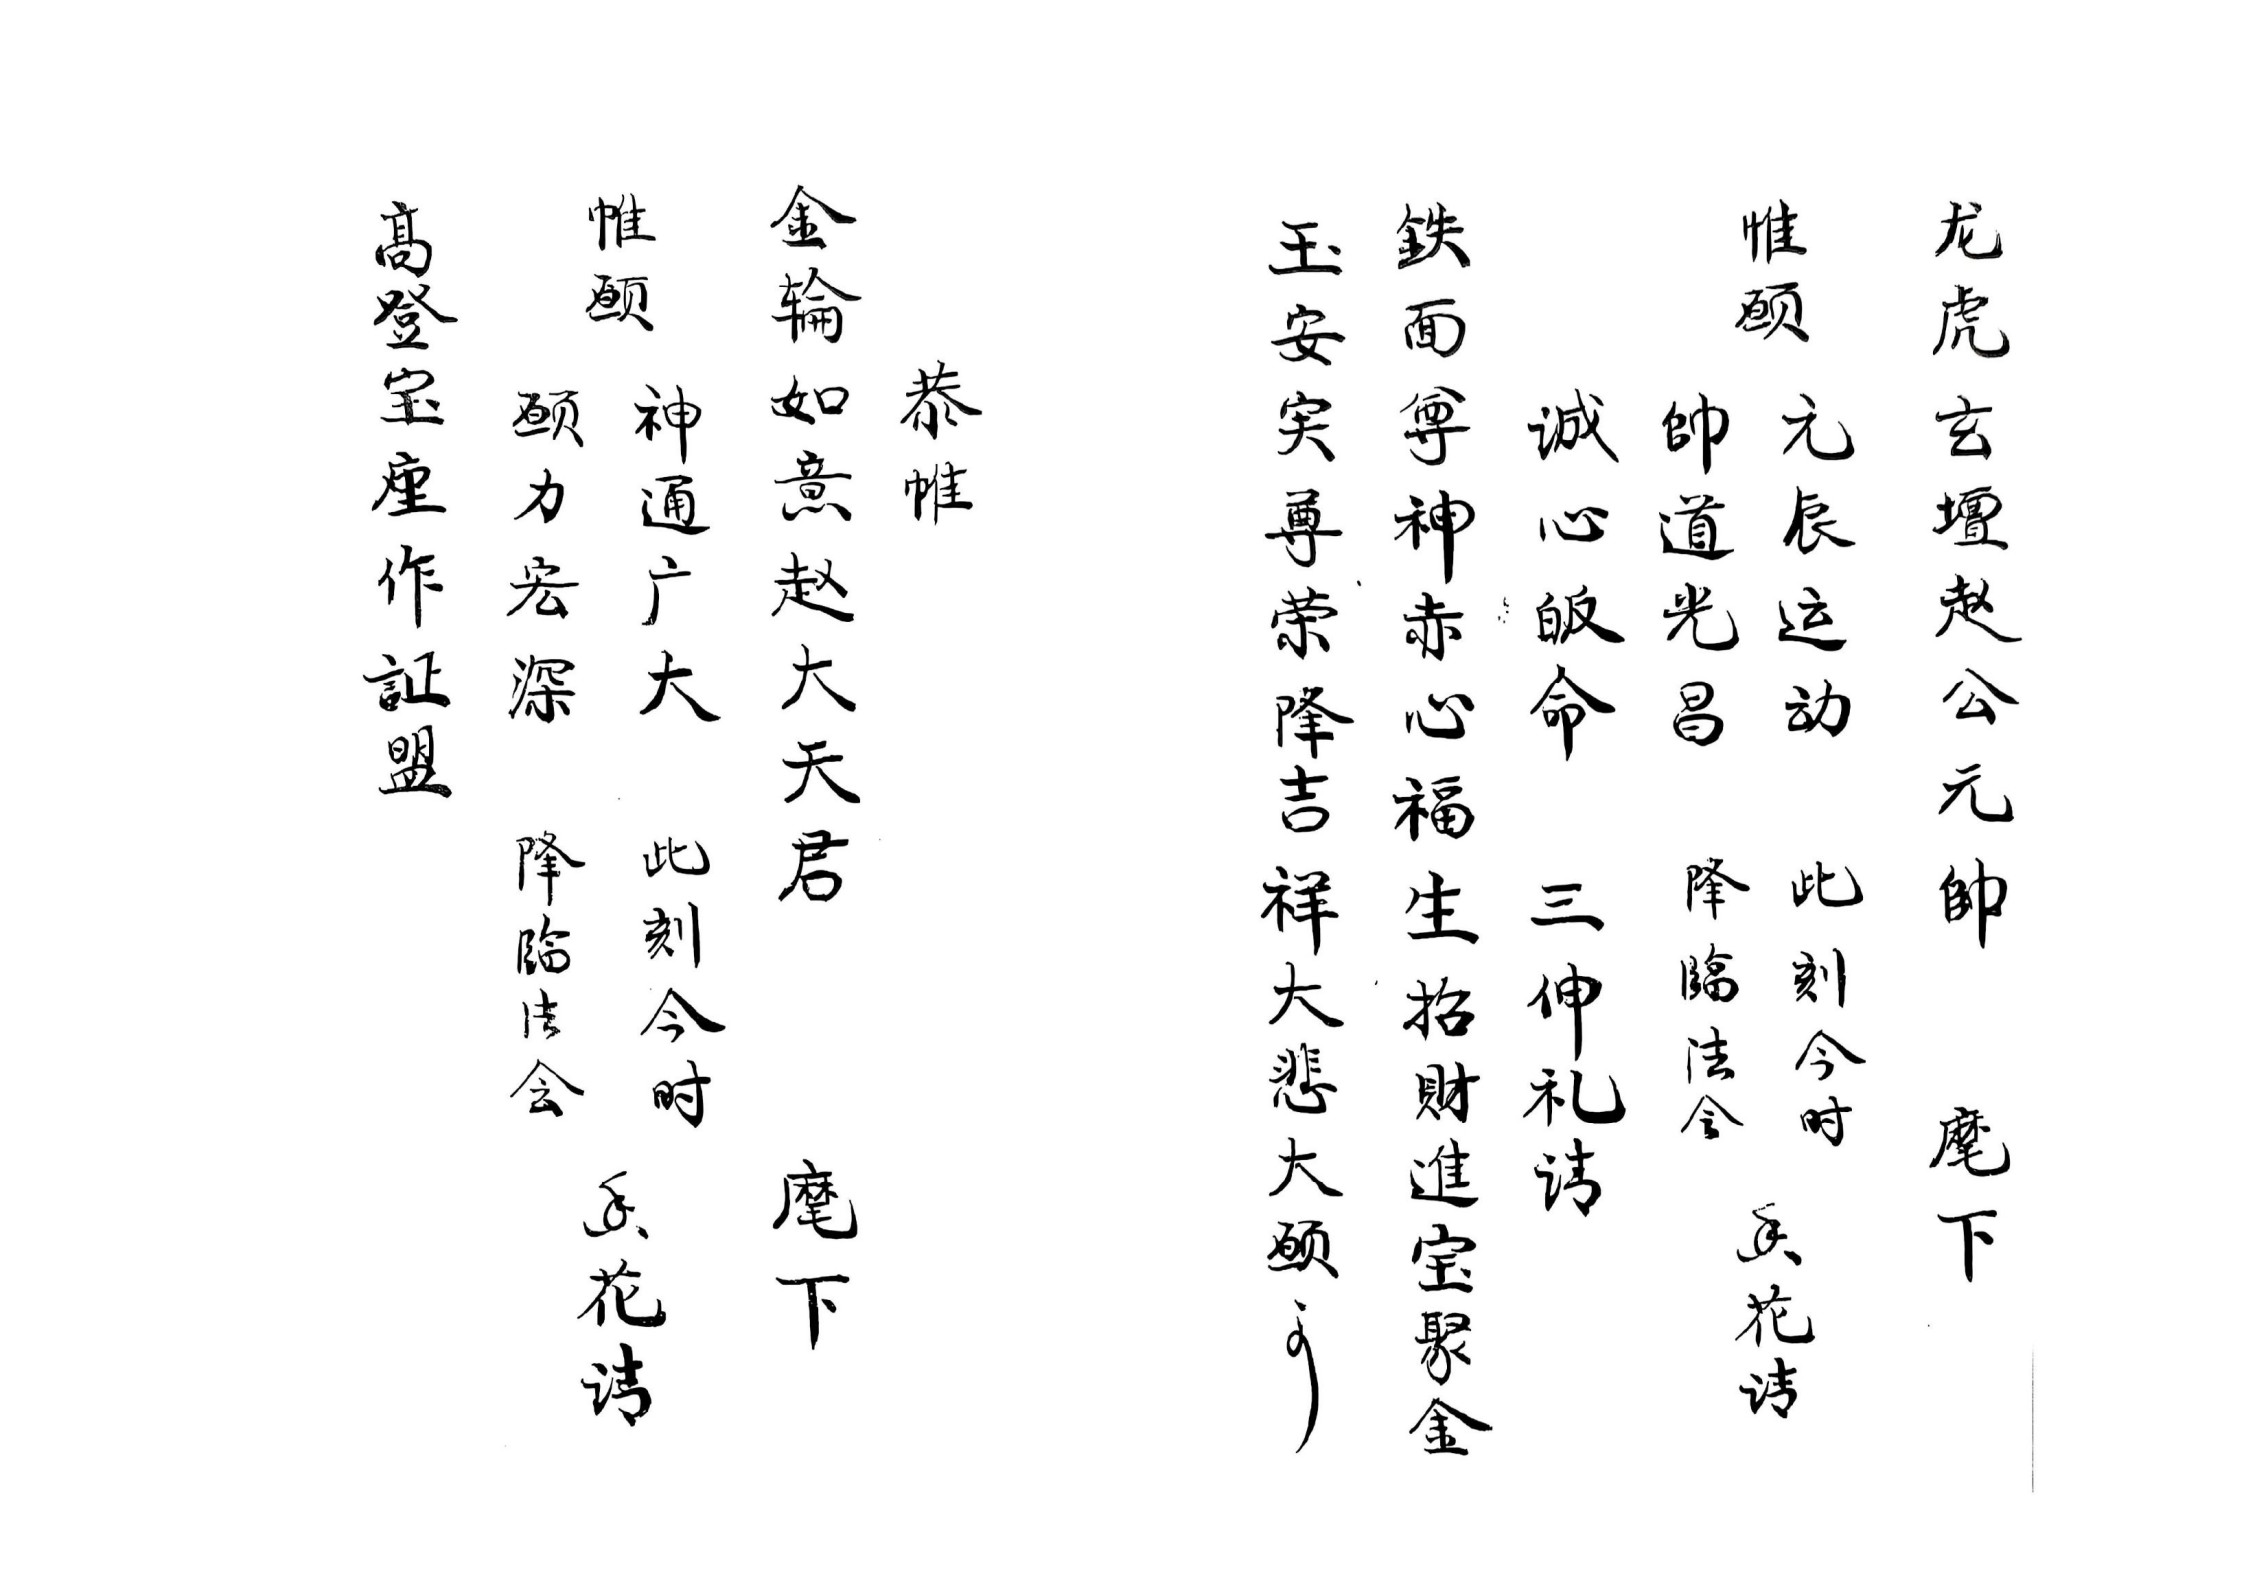 龙虎玄壇赵公元帥　麾下
惟願
元辰运动　此刻今时
帥道光昌　降临法会
香花请
诚心皈命　三伸礼请
鉄面尊神赤心福生招財進宝聚金
玉安实尊荣降吉祥大悲大願
恭惟
金輪如意赵大天君　麾下
惟願
神通广大　此刻今时
願力宏深　降臨法会
香花请
高登宝座作証盟